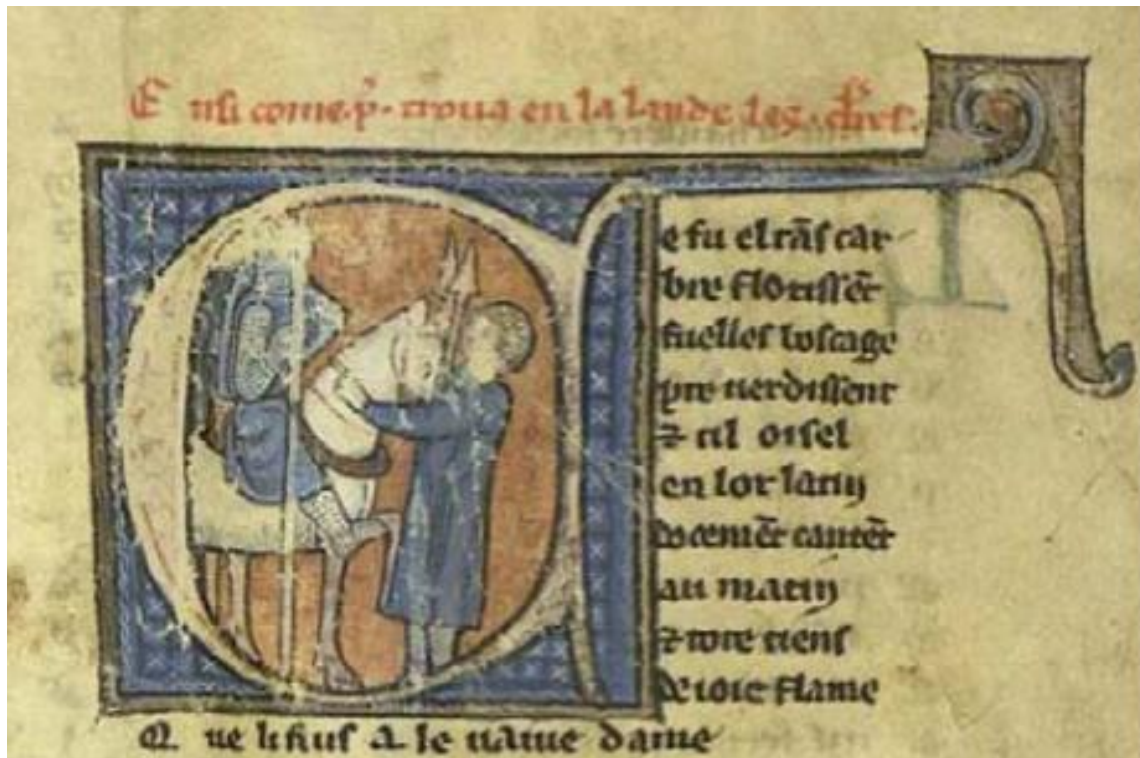 E nsi come .p̃. troua en la lande les ch̃rs.
e fu el tãs car
bre florissẽt
fuelles boscage
pre uerdissent
⁊ cil oisel
en lor latin
docemẽt cantẽt
au matin
⁊ tote riens
de ioie flame
Q ue li fius a le uaiue dame